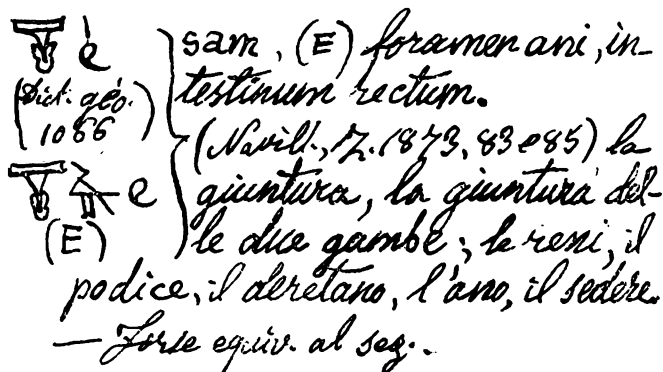 sam, (E) foramen ani, in-
testinum rectum.
(Dict. géo. 1066)
(Navill., Z. 1873, 83 e 85) la
giuntura, la giuntura del-
le due gambe; le reni, il
(E)
podice, il deretano, l'ano, il sedere.
— Forse equiv. al seg..